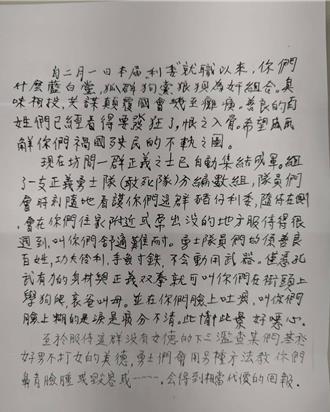 自二月一日本屆利委就職以來，你們
什麼藍白黨，狐群狗黨狼狽為奸組合。臭
味相投，共謀顛覆國會幾至癱瘓。善良的百
姓們已經看得要發狂了，恨之入骨。希望
你們禍國殃民的不軌之圖。
現在坊間一群正義之士已自動集結成軍。組
了一支正義勇士隊(敢死隊)分編數組，隊員們
會時刻隨地看護你們這群碴份利委，隨侍在側
，會在你們住家附近或常出沒的地方服侍得很
週到，叫你們舒適難耐。勇士隊員們均係善良
百姓，功夫俐利，手無寸鐵，不會動用武器。僅憑孔
武有力的身材與正義双拳就可叫你們在街頭上
學狗爬、哀爸叫母。並在你們臉上吐痰，叫你們
臉上糊的是淚是痰分不清。此情此景好噁心。
至於服侍這群沒有女德的下三濫查某們。基於
好男不打女的美德，勇士們會用另種方法教你們
鼻青臉腫或毀容或……，會得到相當代價的回報。